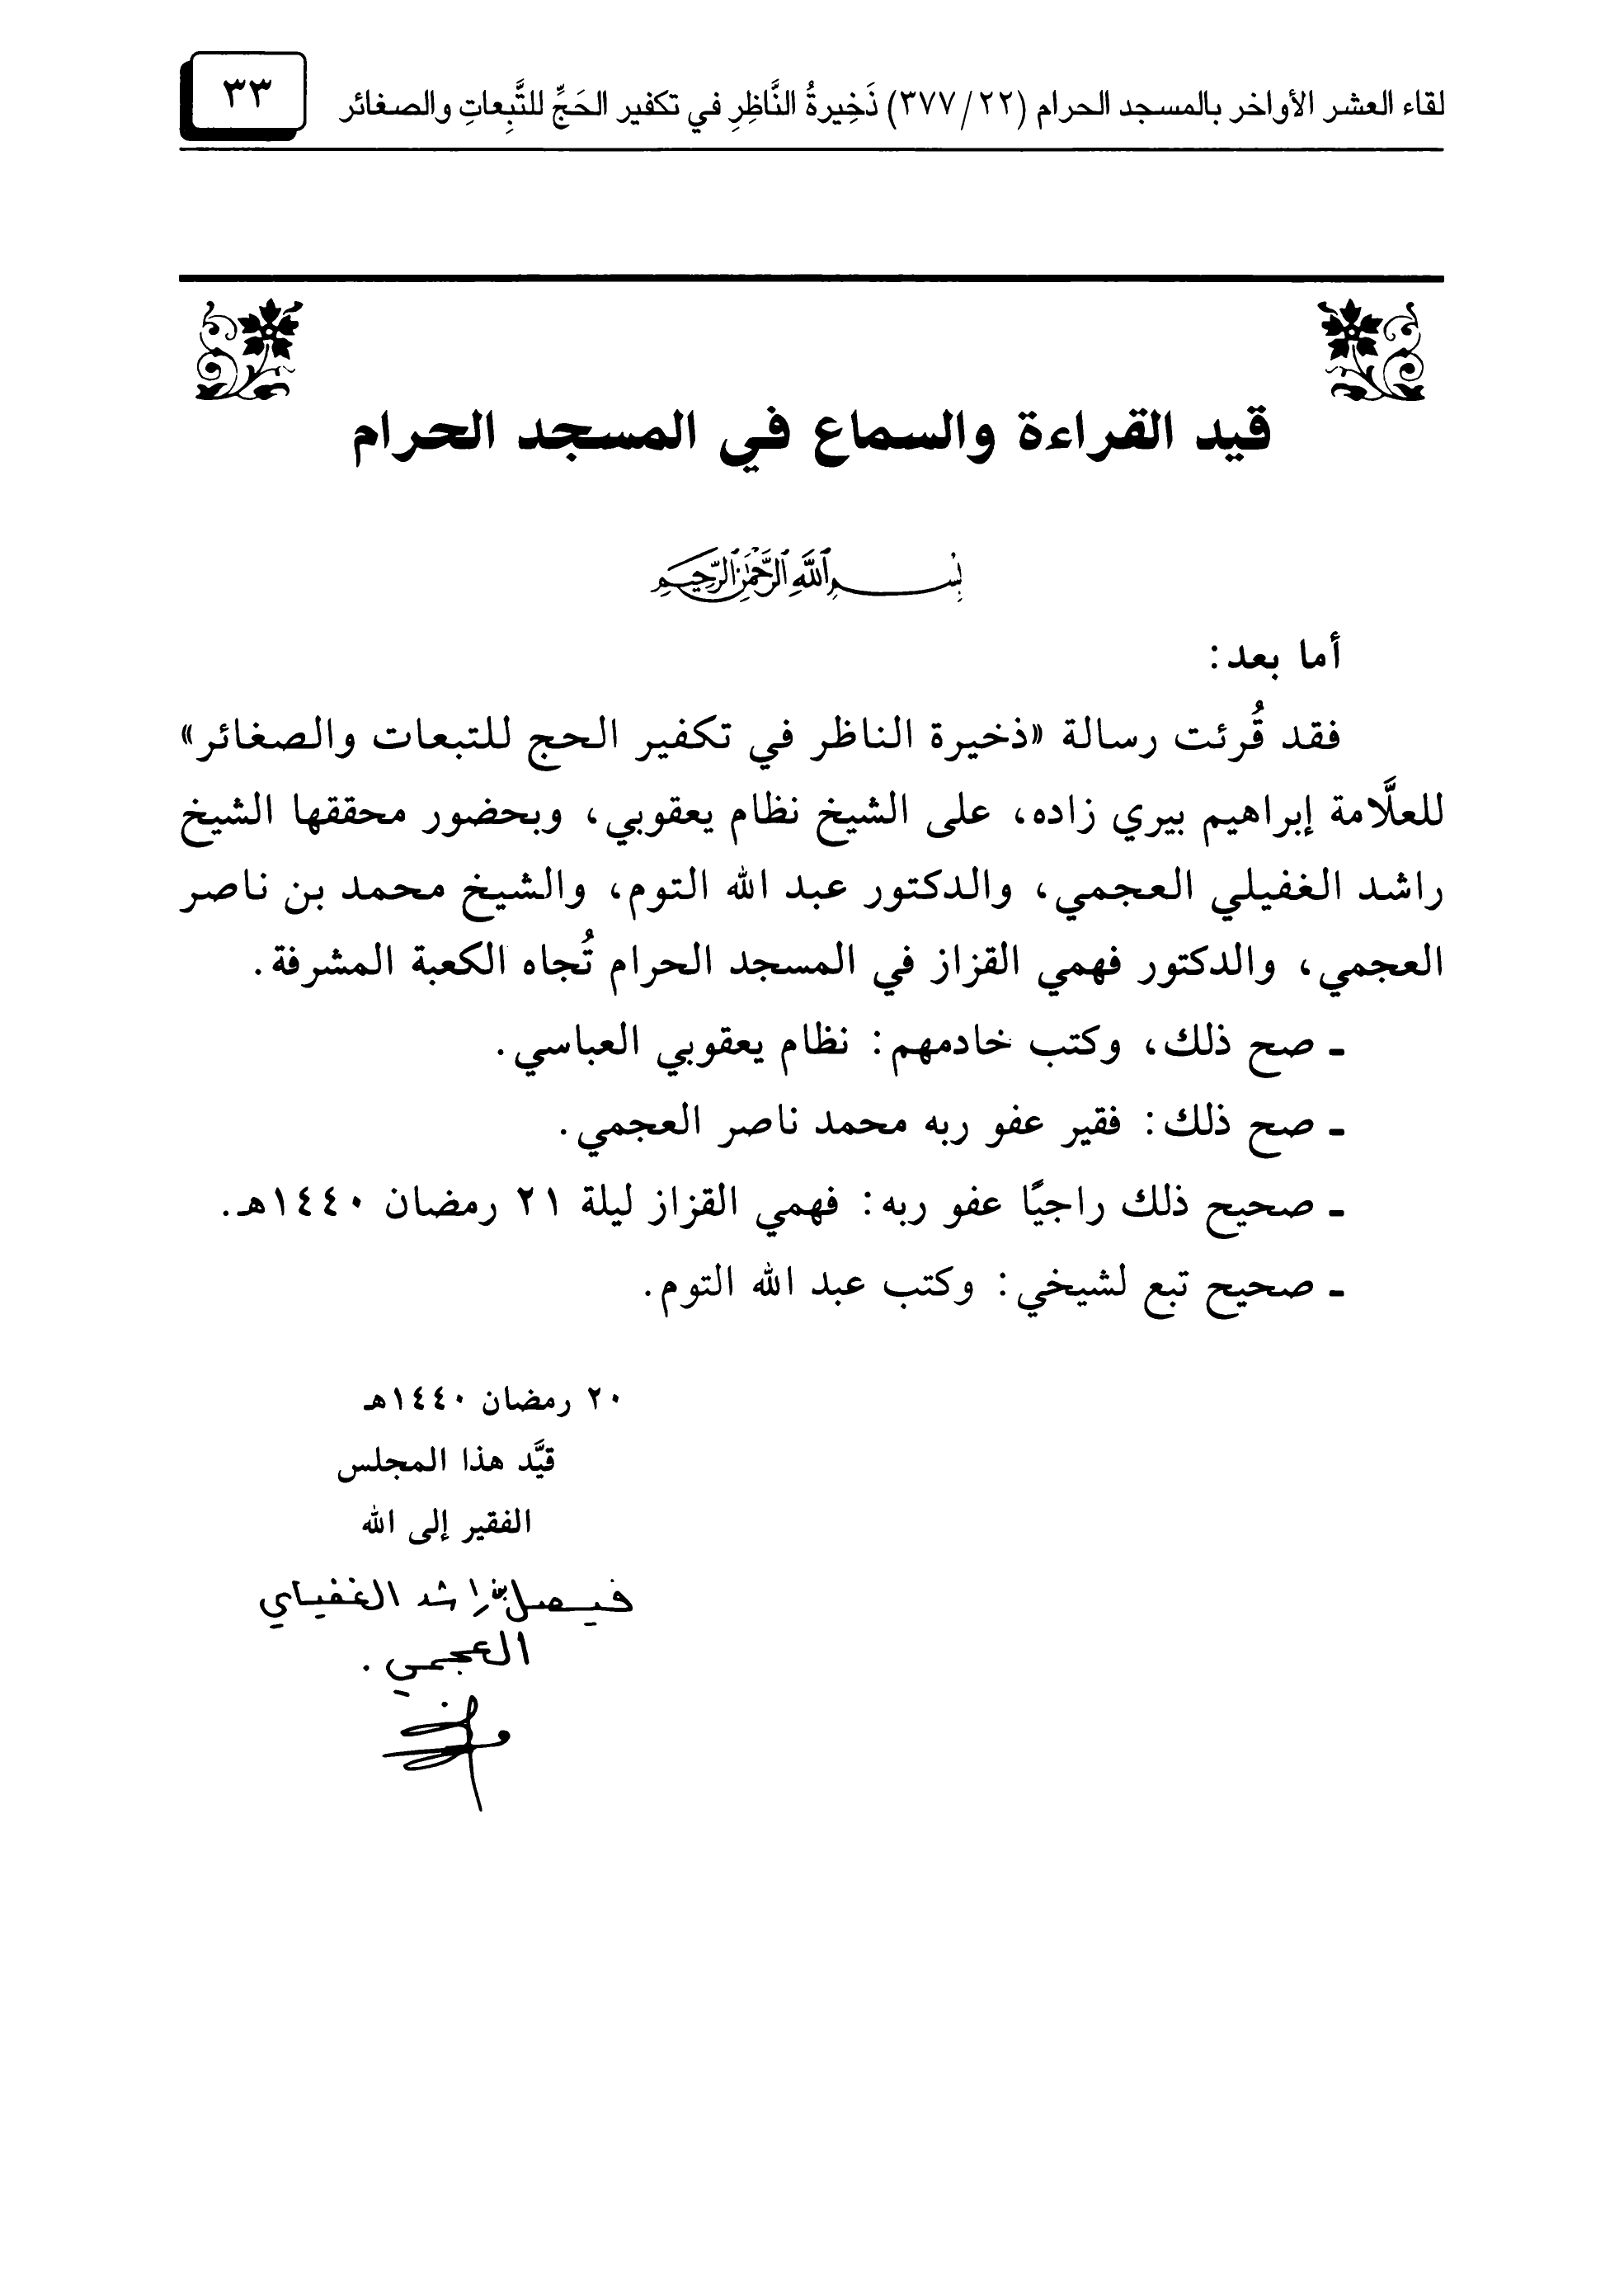 لقاء العشر الأواخر بالمسجد الحرام (٣٧٧/٢٢) ذَخِيرةُ النَّاظِرِ في تكفير الحَجِّ للتَّبِعاتِ والصغائر
٣٣
قيد القراءة والسماع في المسجد الحرام
بسم الله الرحمن الرحيم
أما بعد:
فقد قُرئت رسالة «ذخيرة الناظر في تكفير الحج للتبعات والصغائر»
للعلَّامة إبراهيم بيري زاده، على الشيخ نظام يعقوبي، وبحضور محققها الشيخ
راشد الغفيلي العجمي، والدكتور عبد الله التوم، والشيخ محمد بن ناصر
العجمي، والدكتور فهمي القزاز في المسجد الحرام تُجاه الكعبة المشرفة.
ـ صح ذلك، وكتب خادمهم: نظام يعقوبي العباسي.
ـ صح ذلك: فقير عفو ربه محمد ناصر العجمي.
ـ صحيح ذلك راجيًا عفو ربه: فهمي القزاز ليلة ٢١ رمضان ١٤٤٠هـ.
ـ صحيح تبع لشيخي: وكتب عبد الله التوم.
٢٠ رمضان ١٤٤٠هـ
قيَّد هذا المجلس
الفقير إلى الله
فيصل بن راشد الغفيلي
العجمي.